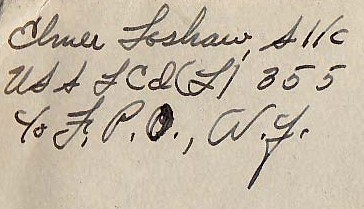 Elmer Loshaw, S 1/c
USS LCI(L) 355
c/o F.P.O., N.Y.